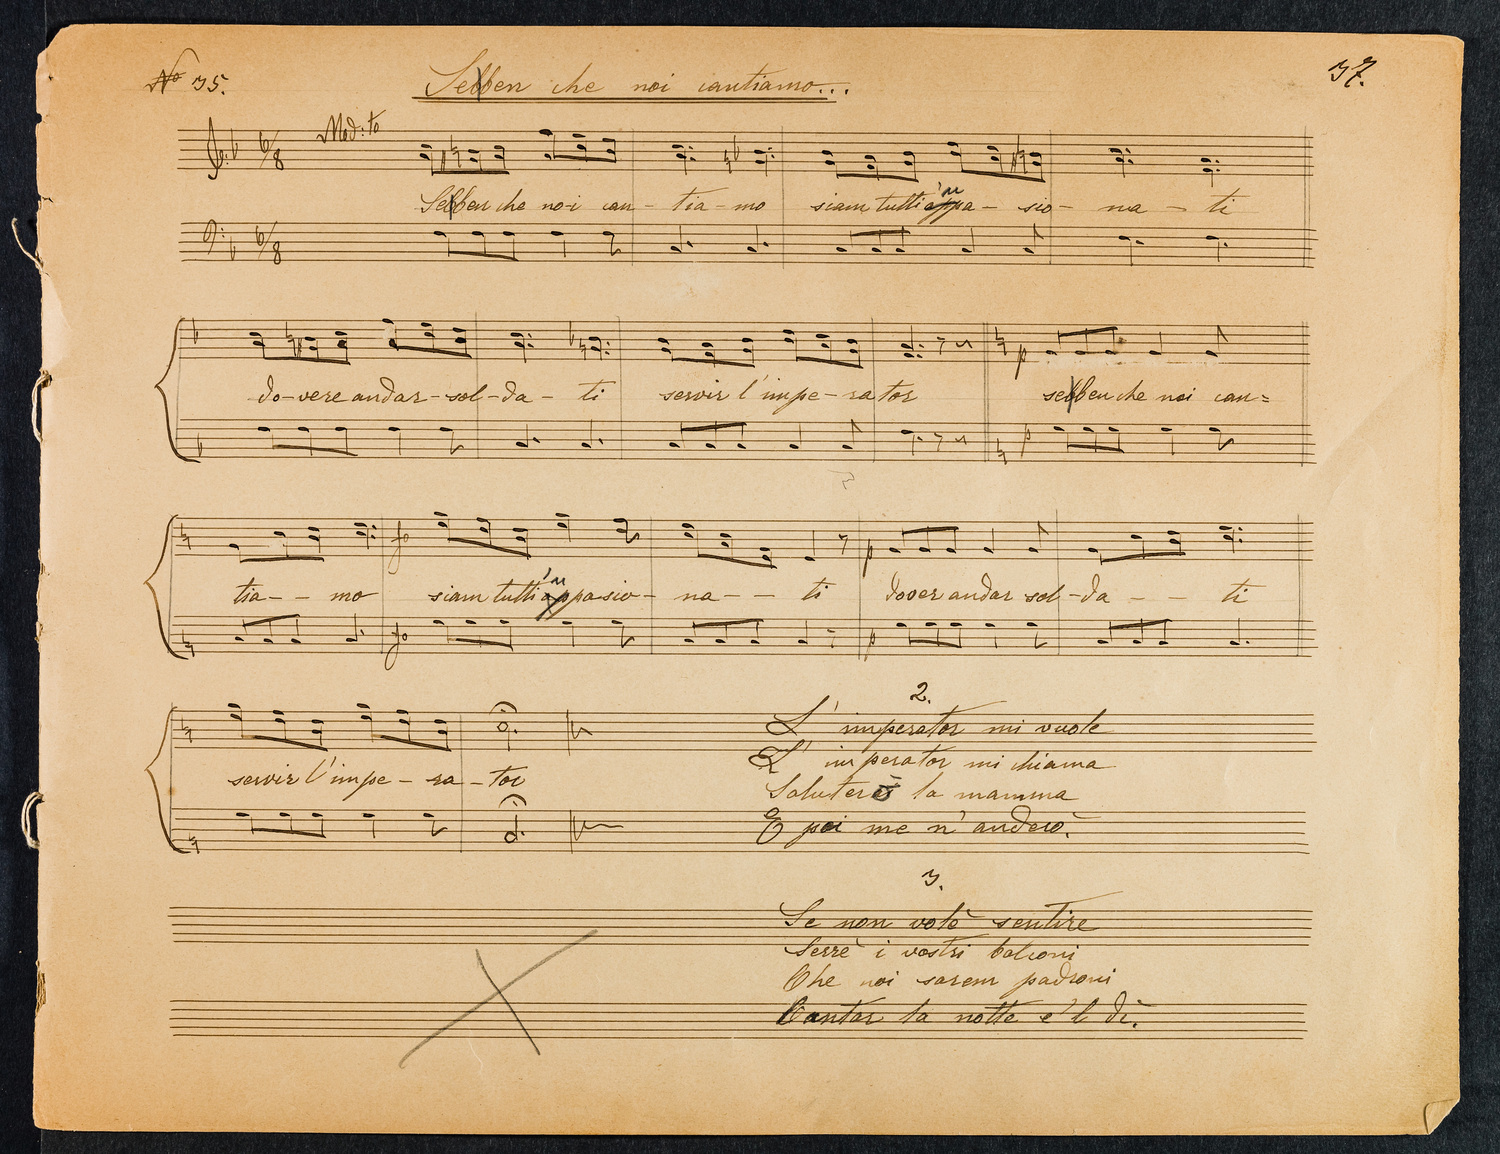 No 35.
37.
Sebben che noi cantiamo...
Mod:to
Sebben che no-i can- tia- mo siam tutti appa- sio- na- ti
do-vere andar- sol- da- ti servir l'impe- rator sebben che noi can=
tia- - mo siam tutti appasio- na- - ti dover andar sol- da- - - ti
servir l'impe- ra- tor
2.
L' imperator mi vuole
L' imperator mi chiama
Saluterò la mamma
E poi me n' anderò.
3.
Se non volè sentire
Serrè i vostri balconi
Che noi sarem padroni
Cantar la notte e'l dì.